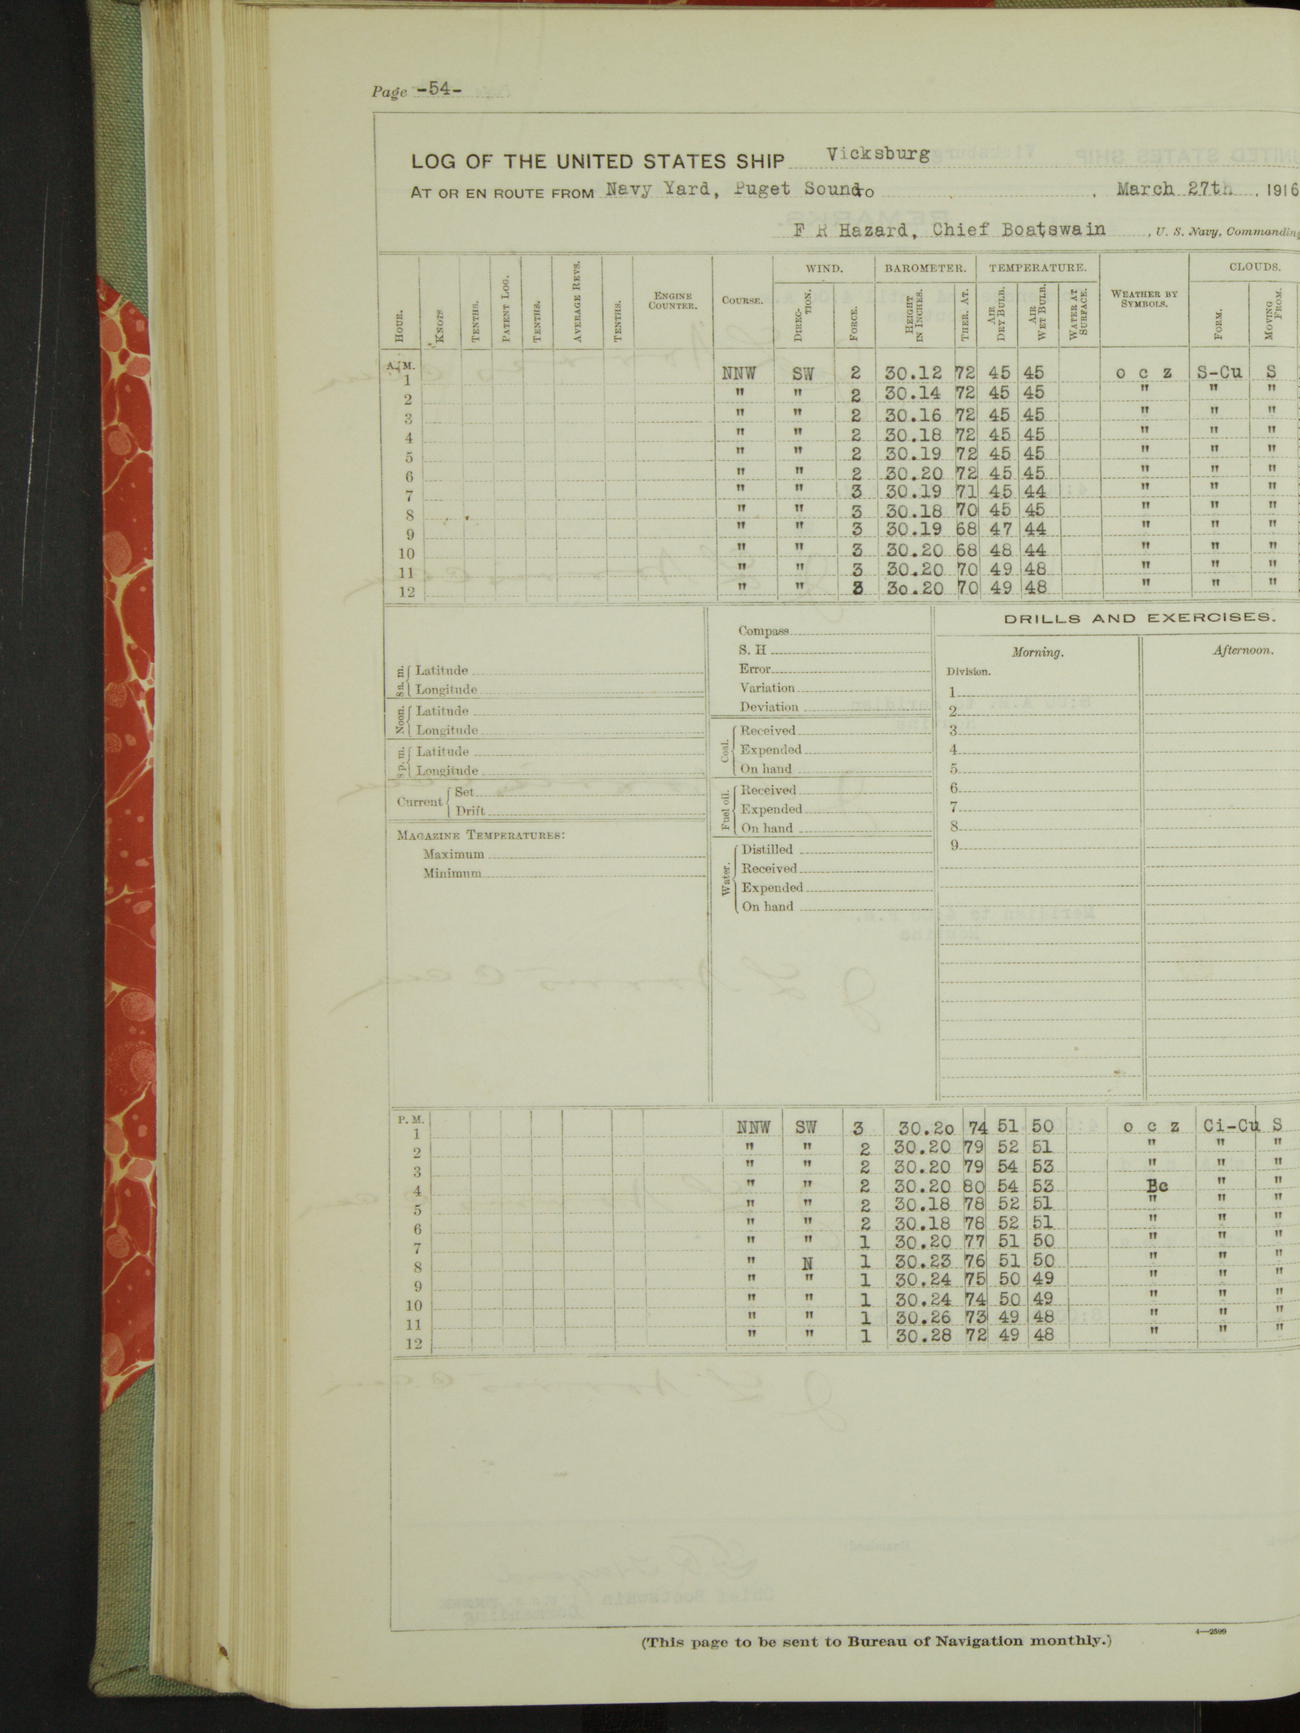 Page -54-
LOG OF THE UNITED STATES SHIP Vicksburg
AT OR EN ROUTE FROM Navy Yard, Puget Sound TO , March 27th , 1916
F R Hazard, Chief Boatswain , U. S. Navy, Commanding
WIND. BAROMETER. TEMPERATURE. CLOUDS.
HOUR. KNOTS TENTHS. PATENT LOG. TENTHS. AVERAGE REVS. TENTHS. ENGINE COUNTER. COURSE. DIREC-TION. FORCE. HEIGHT IN INCHES. THER. AT. AIR DRY BULB. AIR WET BULB. WATER AT SURFACE. WEATHER BY SYMBOLS. FORM. MOVING FROM.
A. M.
1 NNW SW 2 30.12 72 45 45 o c z S-Cu S
2 " " 2 30.14 72 45 45 " " "
3 " " 2 30.16 72 45 45 " " "
4 " " 2 30.18 72 45 45 " " "
5 " " 2 30.19 72 45 45 " " "
6 " " 2 30.20 72 45 45 " " "
7 " " 3 30.19 71 45 44 " " "
8 " " 3 30.18 70 45 45 " " "
9 " " 3 30.19 68 47 44 " " "
10 " " 3 30.20 68 48 44 " " "
11 " " 3 30.20 70 49 48 " " "
12 " " 3 3o.20 70 49 48 " " "
8 a. m. Latitude
Longitude
Noon. Latitude
Longitude
8 p. m. Latitude
Longitude
Current Set
Drift
MAGAZINE TEMPERATURES:
Maximum
Minimum
Compass
S. H
Error
Variation
Deviation
Coal. Received
Expended
On hand
Fuel oil. Received
Expended
On hand
Water. Distilled
Received
Expended
On hand
DRILLS AND EXERCISES.
Morning. Afternoon.
Division.
1
2
3
4
5
6
7
8
9
P. M.
1 NNW SW 3 30.2o 74 51 50 o c z Ci-Cu S
2 " " 2 30.20 79 52 51 " " "
3 " " 2 30.20 79 54 53 " " "
4 " " 2 30.20 80 54 53 Bc " "
5 " " 2 30.18 78 52 51 " " "
6 " " 2 30.18 78 52 51 " " "
7 " " 1 30.20 77 51 50 " " "
8 " N 1 30.23 76 51 50 " " "
9 " " 1 30.24 75 50 49 " " "
10 " " 1 30.24 74 50 49 " " "
11 " " 1 30.26 73 49 48 " " "
12 " " 1 30.28 72 49 48 " " "
(This page to be sent to Bureau of Navigation monthly.)
4—2599